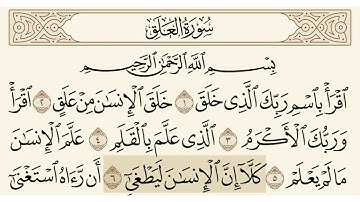 سُورَةُ العَلَقِ
بِسْمِ اللَّهِ الرَّحْمَٰنِ الرَّحِيمِ
ٱقْرَأْ بِٱسْمِ رَبِّكَ ٱلَّذِى خَلَقَ ١ خَلَقَ ٱلْإِنسَٰنَ مِنْ عَلَقٍ ٢ ٱقْرَأْ
وَرَبُّكَ ٱلْأَكْرَمُ ٣ ٱلَّذِى عَلَّمَ بِٱلْقَلَمِ ٤ عَلَّمَ ٱلْإِنسَٰنَ
مَا لَمْ يَعْلَمْ ٥ كَلَّآ إِنَّ ٱلْإِنسَٰنَ لَيَطْغَىٰٓ ٦ أَن رَّءَاهُ ٱسْتَغْنَىٰٓ